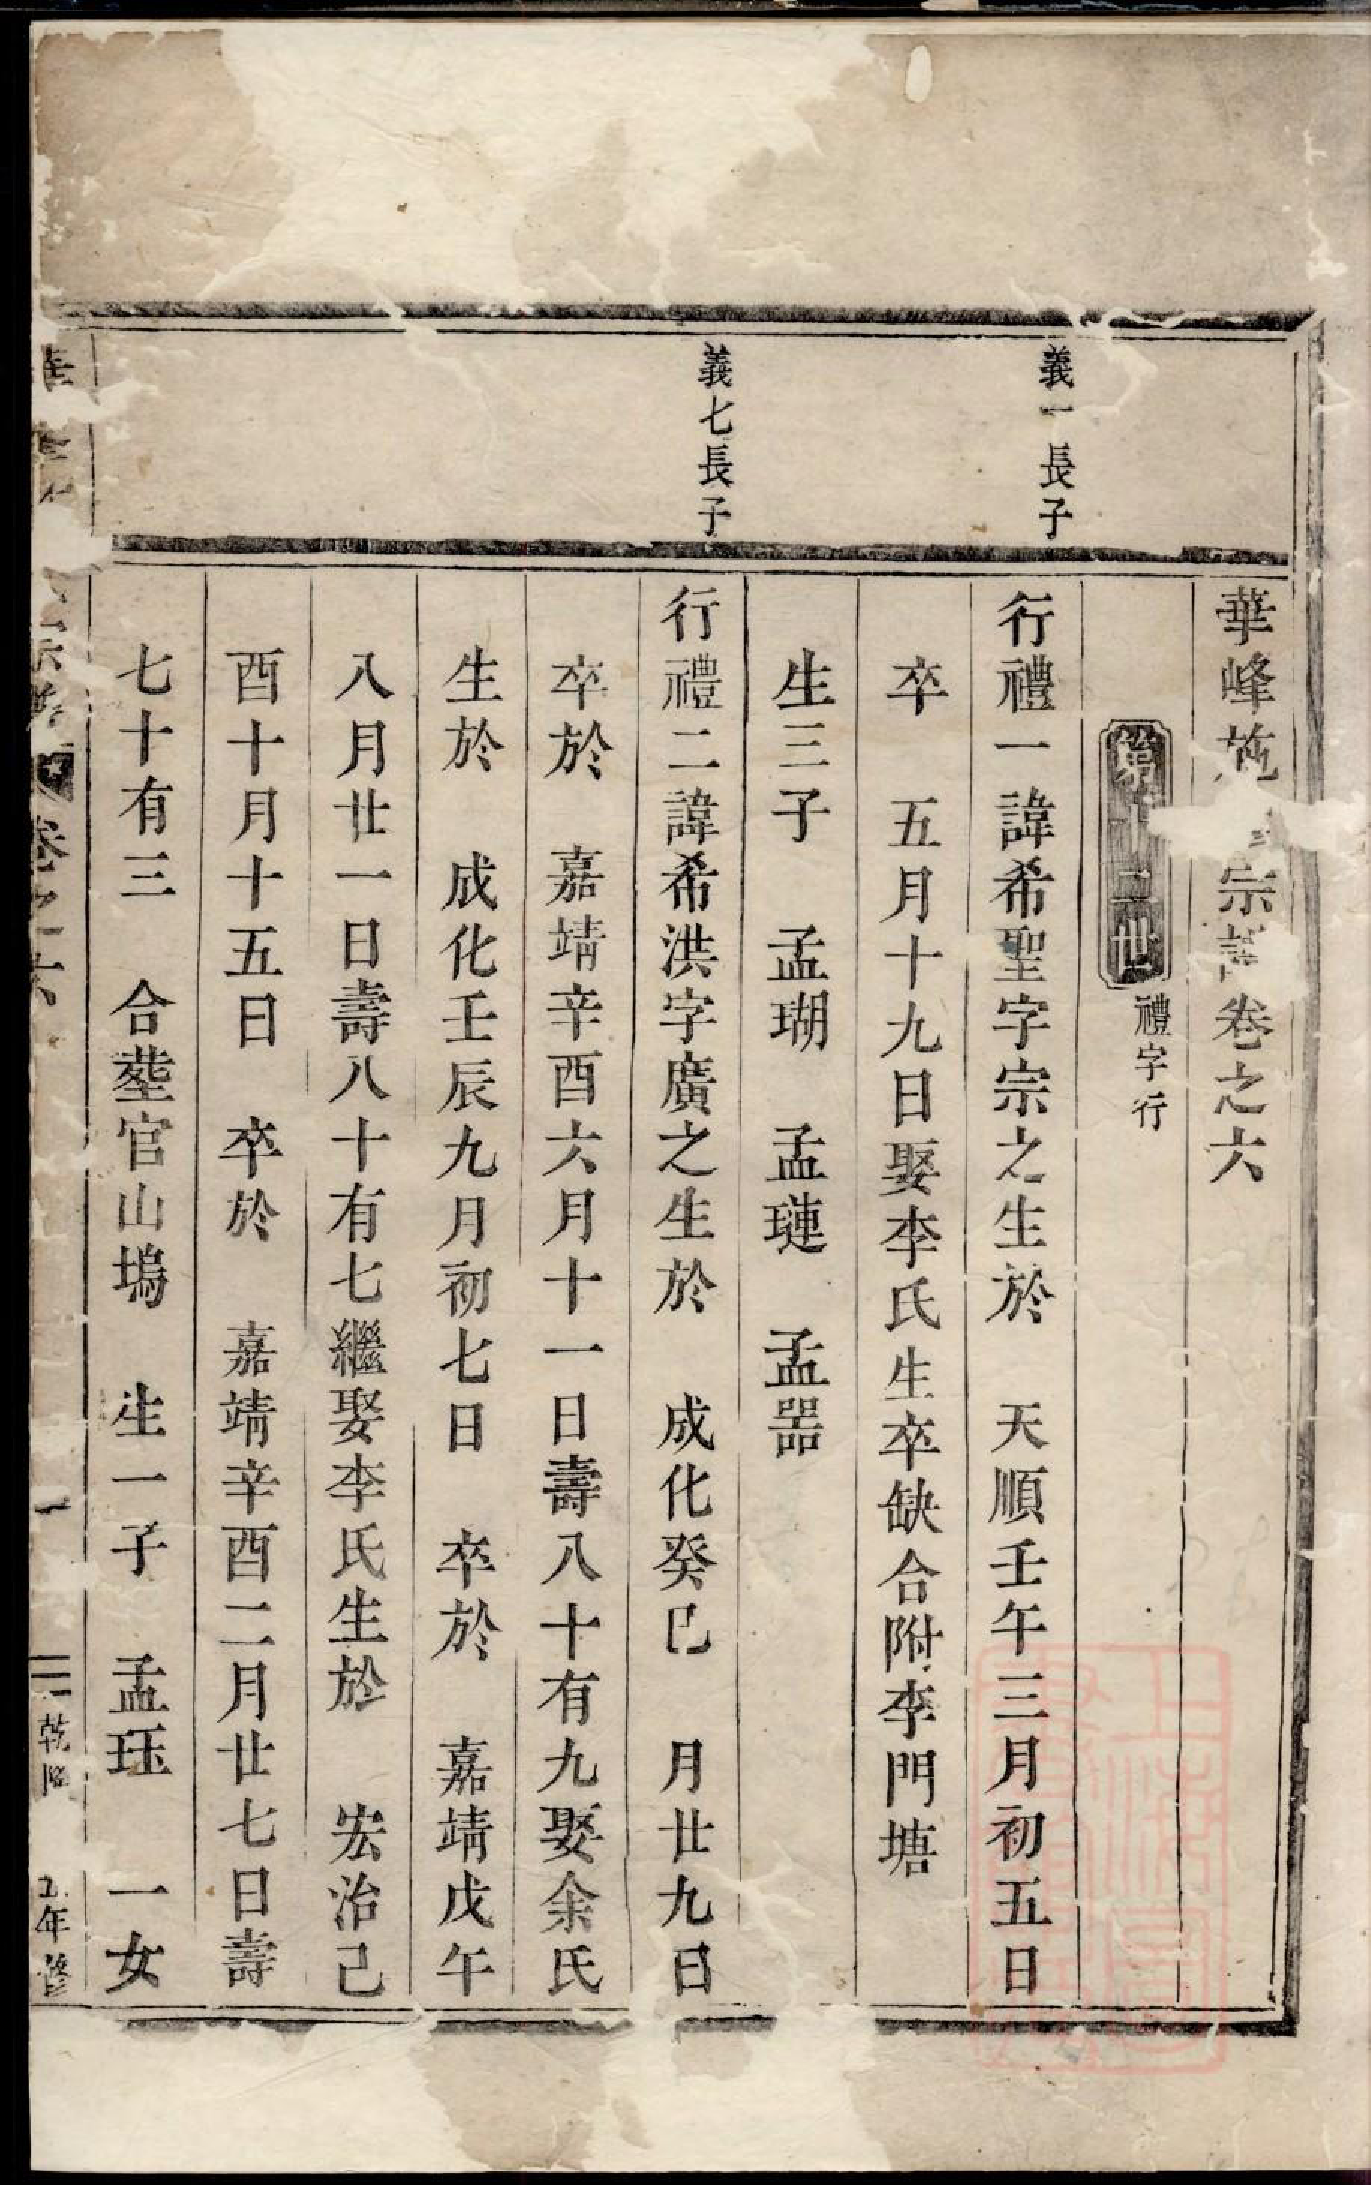 華峰范宗譜卷之六
第十二世 禮字行
義一長子
行禮一諱希聖字宗之生於 天順壬午三月初五日
卒 五月十九日娶李氏生卒缺合附李門塘
生三子 孟瑚 孟璉 孟器
義七長子
行禮二諱希洪字廣之生於 成化癸巳 月廿九日
卒於 嘉靖辛酉六月十一日壽八十有九娶余氏
生於 成化壬辰九月初七日 卒於 嘉靖戊午
八月廿一日壽八十有七繼娶李氏生於 宏治己
酉十月十五日 卒於 嘉靖辛酉二月廿七日壽
七十有三 合塟官山塢 生一子 孟珏 一女
卷之六 一 乾隆 年修